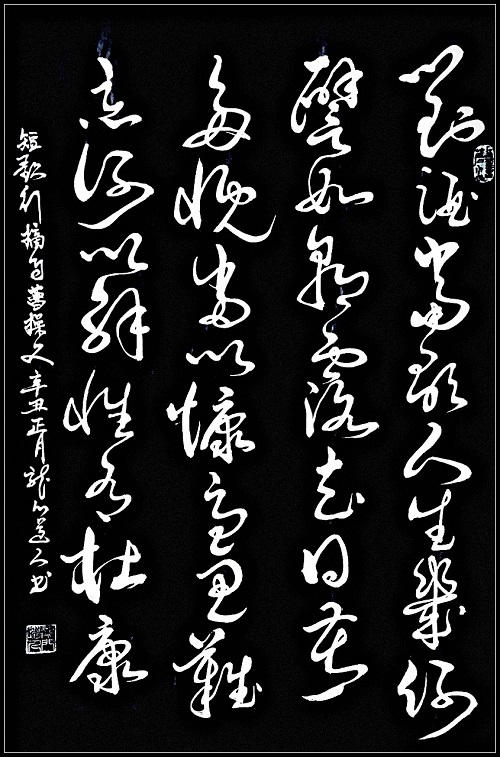 對酒當歌人生幾何
譬如朝露去日苦
多慨當以慷憂思難
忘何以解惟有杜康
短歌行摘自曹操文辛丑正月龍心道人书